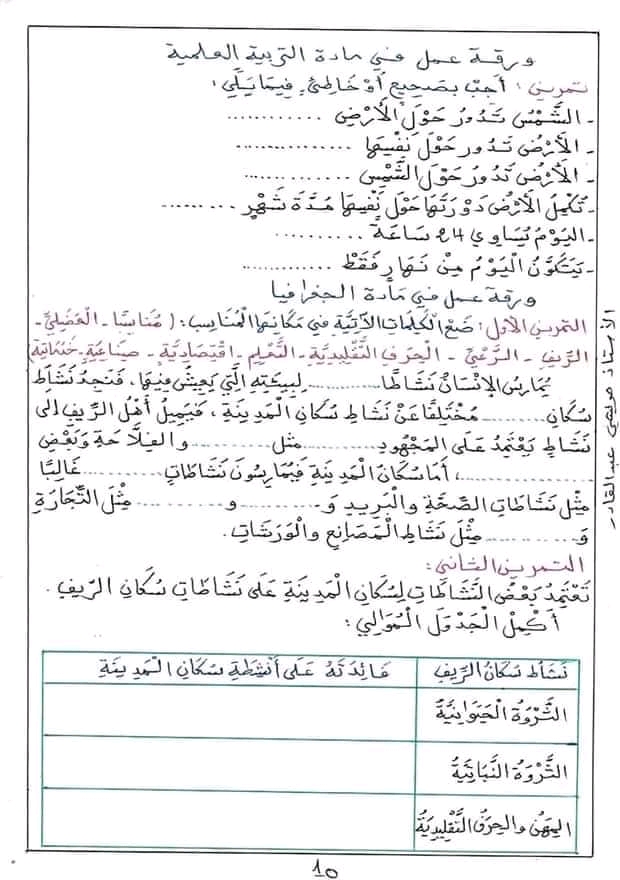 ورقة عمل في مادة التربية العلمية
تمرين : أجب بصحيح أو خاطئ فيما يلي :
- الشَّمْسُ تَدُورُ حَوْلَ الأَرْضِ ............
- الأَرْضُ تَدُورُ حَوْلَ نَفْسِهَا ...............
- الأَرْضُ تَدُورُ حَوْلَ الشَّمْسِ .............
- تُكْمِلُ الأَرْضُ دَوْرَتَهَا حَوْلَ نَفْسِهَا مُدَّةَ شَهْرٍ .........
- اليَوْمُ يُسَاوِي 24 سَاعَة ..........
- يَتَكَوَّنُ الْيَوْمُ مِنْ نَهَارٍ فَقَطْ .............
ورقة عمل في مادة الجغرافيا
التمرين الأول : ضَعْ الْكَلِمَاتِ الآتِيَةِ فِي مَكَانِهَا الْمُنَاسِبِ : ( مُنَاسِبًا - الْعَضَلِيِّ -
الرِّيفِ - الرَّعْيِ - الْحِرَفِ التَّقْلِيدِيَّةِ - التَّعْلِيمِ - اقْتِصَادِيَّةٍ - صِنَاعِيَّةٍ - خَدَمَاتِيَّةٍ )
يُمَارِسُ الإِنْسَانُ نَشَاطًا ............ لِبِيئَتِهِ الَّتِي يَعِيشُ فِيهَا، فَنَجِدُ نَشَاطَ
سُكَانِ .......... مُخْتَلِفًا عَنْ نَشَاطِ سُكَانِ الْمَدِينَةِ ، فَيَمِيلُ أَهْلُ الرِّيفِ إلَى
نَشَاطٍ يَعْتَمِدُ عَلَى الْمَجْهُودِ ............ مثل .......... والفِلَاحَةِ وَبَعْضِ
.............. ، أَمَا سُكَانَ الْمَدِينَةِ فَيُمَارِسُونَ نَشَاطَاتٍ .......... غَالِبًا
مِثْلَ نَشَاطَاتِ الصِّحَّةِ وَالْبَرِيدِ وَ ........... و ............. مِثْلَ التِّجَارَةِ
وَ ............ مِثْلَ نَشَاطِ الْمَصَانِعِ وَالْوَرَشَاتِ .
التمرين الثاني :
تَعْتَمِدُ بَعْضُ النَّشَاطَاتِ لِسُكَانِ الْمَدِينَةِ عَلَى نَشَاطَاتِ سُكَانِ الرِّيفِ .
أَكْمِلْ الْجَدْوَلَ الْمُوَالِي :
نَشَاطُ سُكَانِ الرِّيفِ فَائِدَتُهُ عَلَى أَنْشِطَةِ سُكَانِ الْمَدِينَةِ
الثَّرْوَةُ الْحَيَوَانِيَّةُ
الثَّرْوَةُ النَّبَاتِيَّةُ
المِهَنُ والحِرَفُ التَّقْلِيدِيَّةُ
الأستاذ مريمي عبد القادر
10